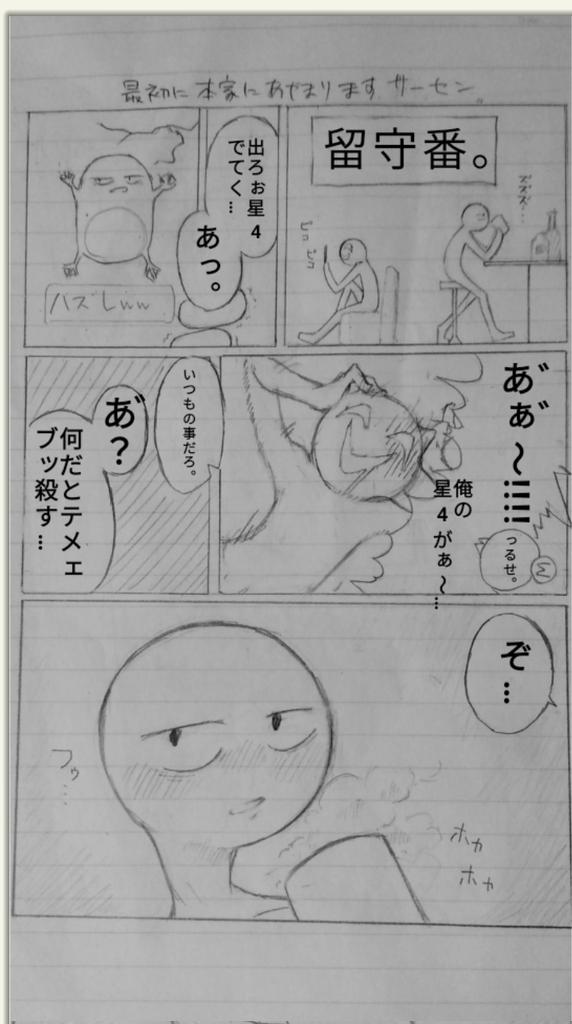 最初に本家にあやまりますサーセン。
留守番。
ズズズ…
ピコ
ピコ
出ろぉ星4
でてく…
あっ。
ハズレww
あ゛ぁ゛～!!!!!
俺の
星4がぁ～…
つるせ。
いつもの事だろ。
あ゛？
何だとテメェ
ブッ殺す…
ぞ…
フゥ…
ホカ
ホカ